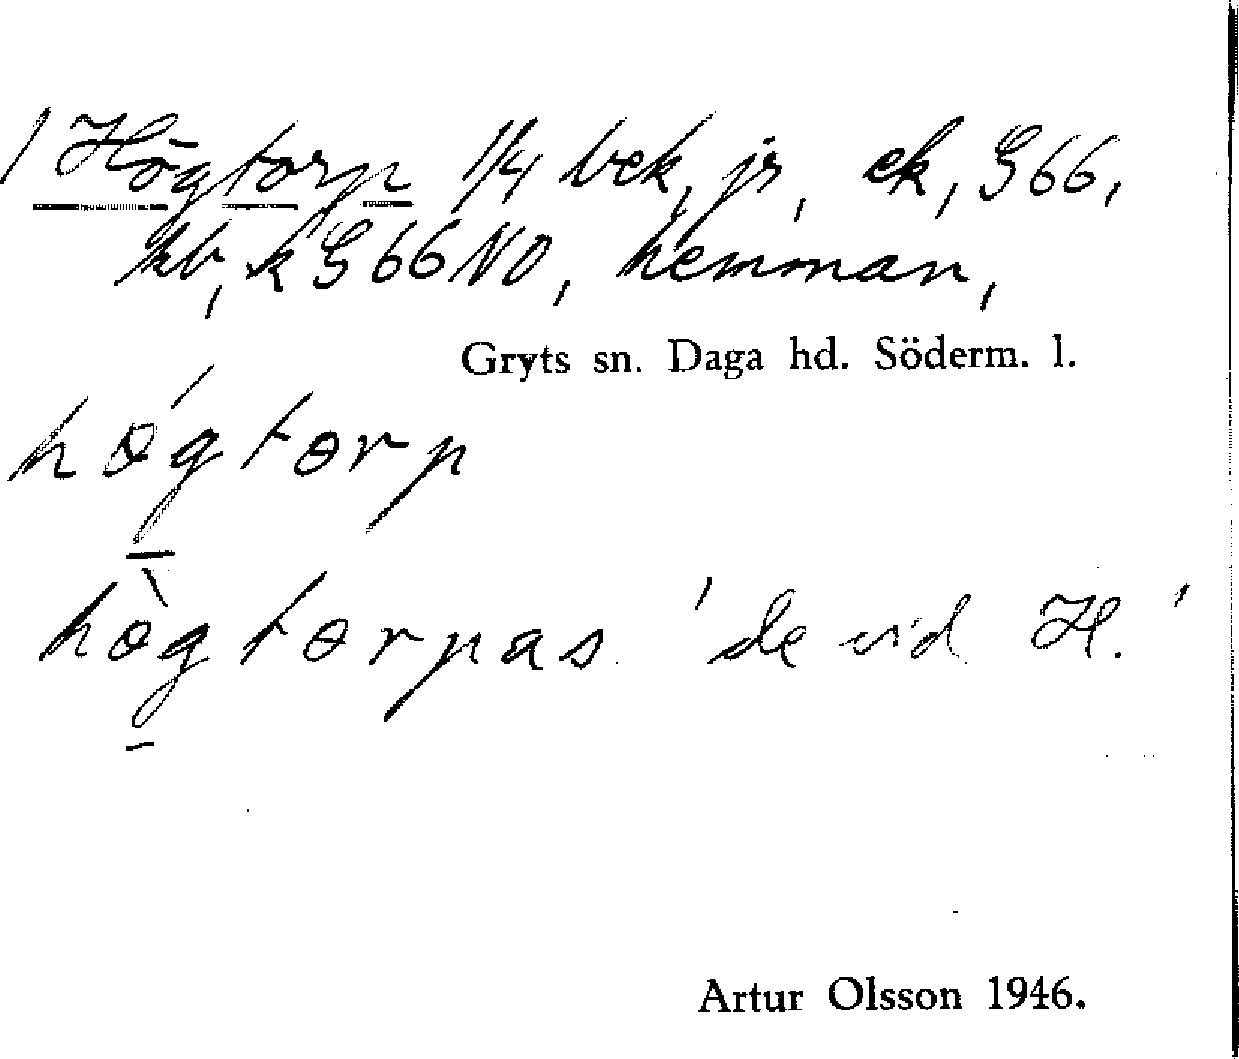 1 Högtorp 1/4 bek, jr, ek, G66,
kb, k G 66 NO, hemman,
Gryts sn. Daga hd. Söderm. l.
hǿgtɵrp
hɵ̀gtɵrpas 'de vid H.'
Artur Olsson 1946.